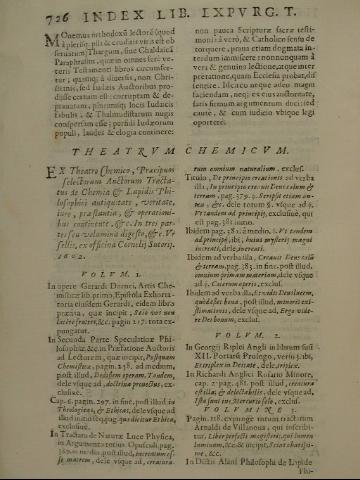 726 INDEX LIB. EXPVRG. T.
MOnemus orthodoxũ lectorẽ (quod
à plerisq; piis & eruditis viris est ob
seruatum) Thargum, siue Chaldaicã
Paraphrasim, quæ in omnes ferè ve-
teris Testamenti libros circumfer-
tur; quamq; à diuersis, non Chri-
stianis, sed Iudæis Auctoribus pro-
diisse certum est: corruptam & de-
prauatam, plurimisq; locis Iudaicis
fabulis, & Thalmudistarum nugis
conspersam esse; perfidi Iudæorum
populi, laudes & elogia continere:
non pauca Scripturæ sacræ testi-
monia à vero, & Catholico sensu de
torquere, praua etiam dogmata in-
terdum immiscere:
pretatione, quam Ecclesia probat, dif-
fungine. Id circo neque adeo magni
faciendam, neq; ex eius auctoritate,
satis firmum argumentum duci ed
caute, & cum iudicio vbique legi
oportere.
THEATRVM CHEMICVM.
EX Theatro Chemico, Præcipuos
selectorum Auctorum Tracta-
tus de Chemiæ & Lapidis Phi-
losophici antiquitate, veritate,
iure, præstantia, & operationi-
bus continente, &c. In tres par-
tes seu volumina digesto, &c. V-
rsellis, ex officina Cornelij Sutorij.
1602.
VOLVM. 1.
In opere Gerardi Dornei, Artis Che-
misticæ lib. primo, Epistola Exhorta-
toria eiusdem Gerardi, eidem libro
præuia, quæ incipit, Scio vos non
latere fratres, &c. pagin. 217. tota ex-
pungatur.
In Secunda Parte Speculatiuæ Phi-
losophiæ, &c. in Præfatione Auctoris
ad Lectorem, quæ incipit, Postquam
Chemistica, pagin. 258. ad medium,
post illud, Daissem operam. Tandem,
dele vsque ad, doctrina proactus, ex-
clusiuè.
Cap. 6. pagin. 297. in fine, post illud in
Theologicis, & Ethicis, dele vsque ad
illud in sexto, quoq; qua dicitur Ethica,
exclusiuè.
In Tractatu de Naturæ Luce Physica,
in Argumento totius Opusculi, pag.
dele vsque ad, creatura-
rum omnium naturalium, exclus.
Titulo, De principio creationis ad verba
illa, In principio creauit Deus cælum &
terram, pag. 379. Scripsit etiam no-
ua, &c. dele totum §. vsque ad §.
Vt tandem ad principij, exclusiuè, qui
est pag. 381. initio.
Ibidem pag. 381. à medio, §. Vt tendem
ad principij, ibi, huius mysterij magni
increati, dele, increati.
Ibidem ad verba illa, Creauit Deus cælũ
& terram, pag. 383. in fine, post illud,
omnium primam materiam, dele vsque
ad, §. Cæterum aperis, exclus.
Ibidem ad verba illa, Et vidit Deus lucem,
quòd esset bona, post illud, minorij exi-
stimantis, dele vsque ad, Ergo vide-
re Dei bonum, exclus.
VOLVM. 2.
In Georgij Riplei Angli in librum suũ
XII. Portarũ Prologo, versu 5. ibi,
Et tripleæ in Deitate, dele, triplex.
In Richardi Anglici Rosario Minore,
cap. 2. pag. 481. post illud, creatura
cælestia, & delectabilis, dele vsque ad,
Sed primum, Mercurio solo, exclus.
VOLVMINE 3.
Pagin. 128. expunge totum tractatum
Arnaldi de Villanoua, qui inscribi-
tur,
&c. exclusiuè.
In Dictis Alani Philosophi de Lapide
Phi-